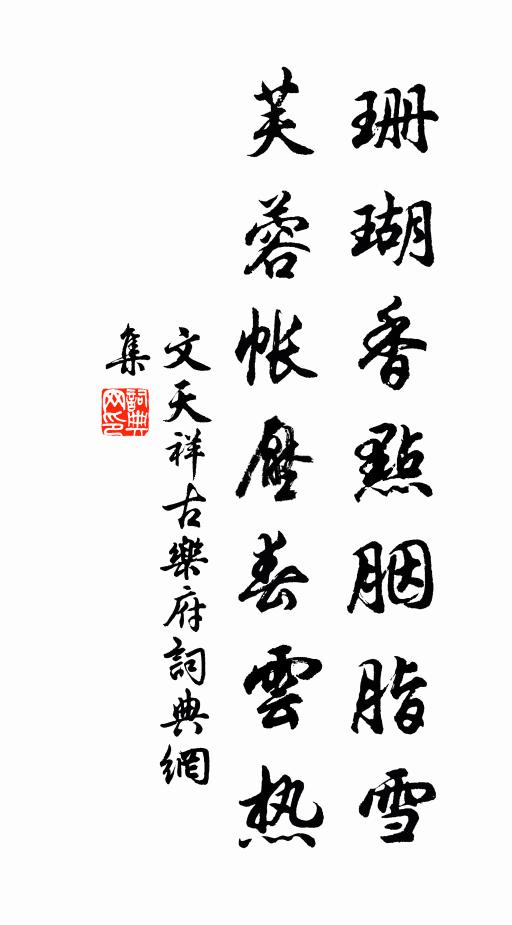 珊瑚香點胭脂雪
芙蓉帳壓春雲热
文天祥古樂府詞典網
集
詞典
网印